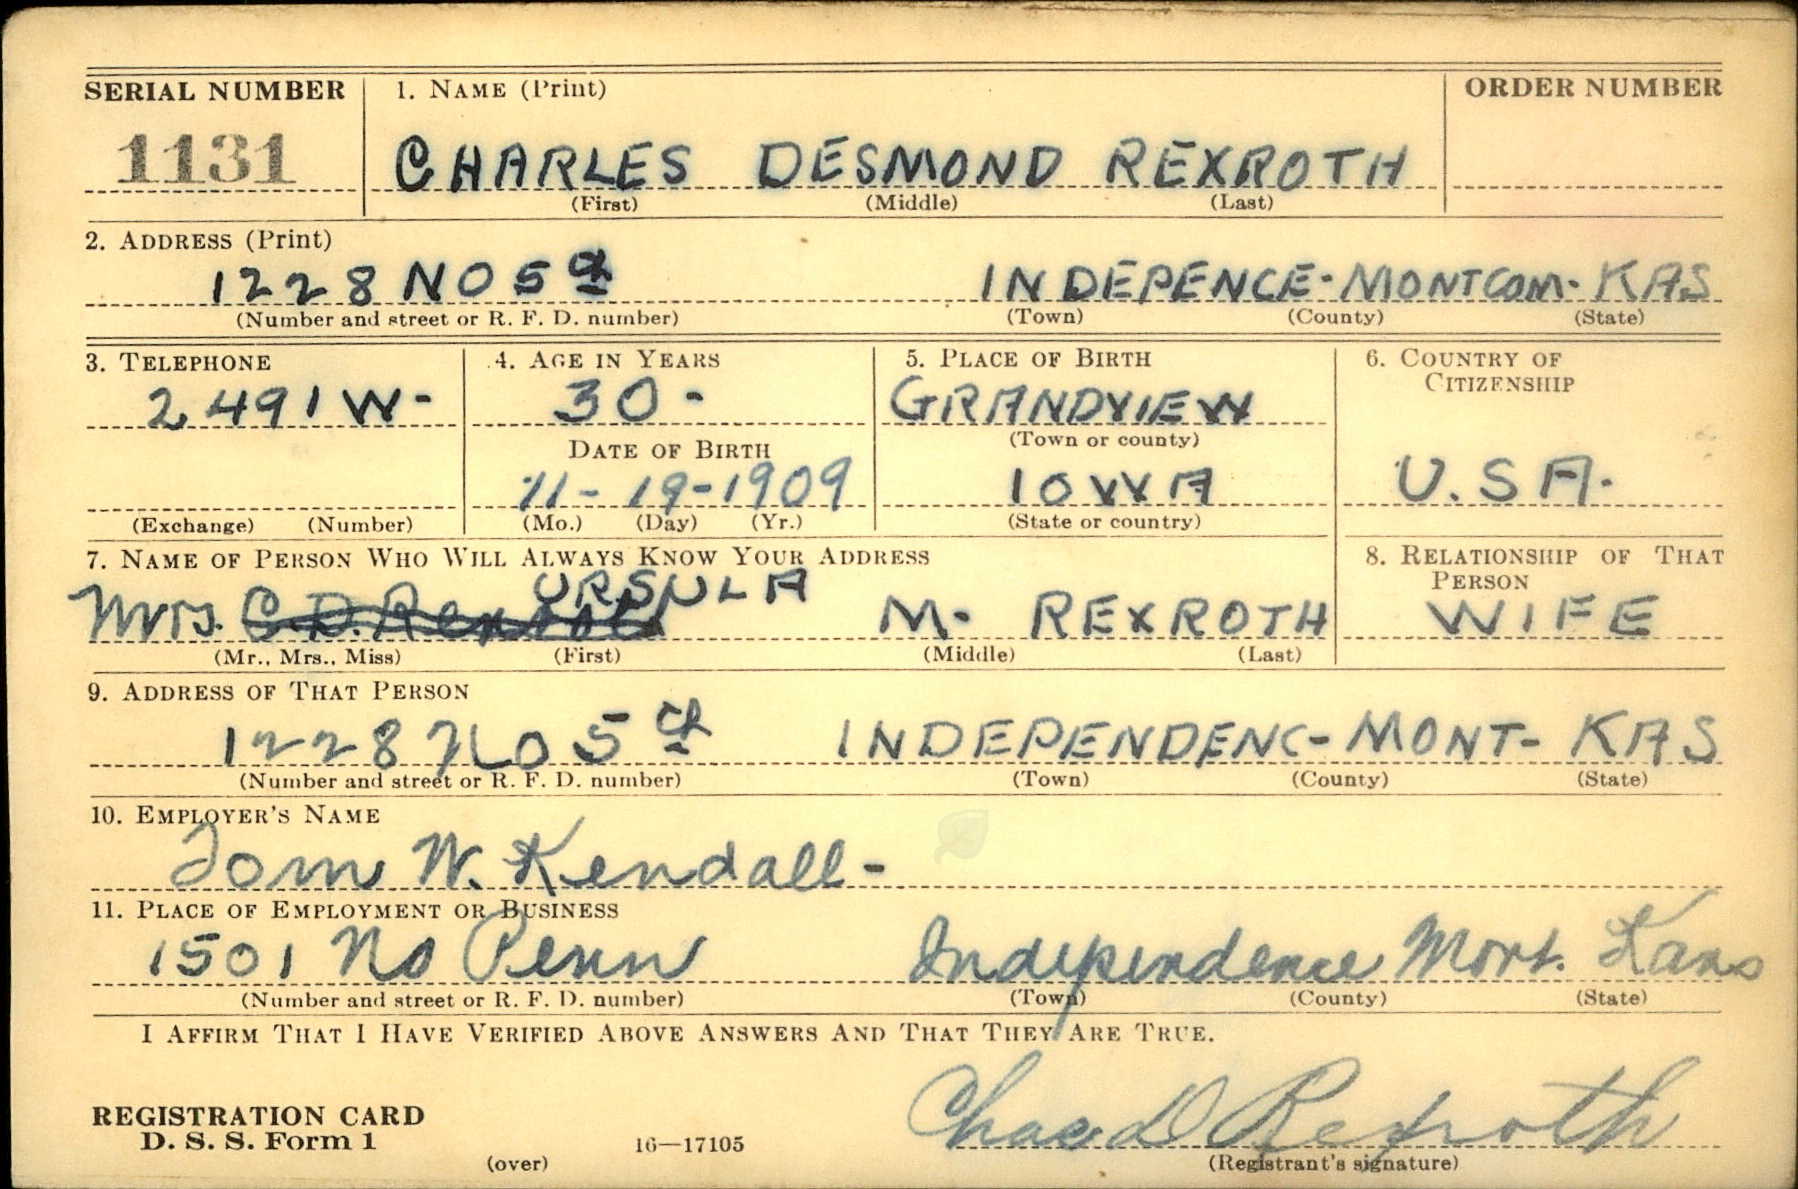 SERIAL NUMBER 1. NAME (Print) ORDER NUMBER
1131 CHARLES DESMOND REXROTH
(First) (Middle) (Last)
2. ADDRESS (Print)
1228 NO 5th INDEPENCE - MONTGOM - KAS
(Number and street or R. F. D. number) (Town) (County) (State)
3. TELEPHONE 4. AGE IN YEARS 5. PLACE OF BIRTH 6. COUNTRY OF
CITIZENSHIP
2491W- 30- GRANDVIEW
(Town or county)
DATE OF BIRTH
11-19-1909 IOWA U.S.A.
(Exchange) (Number) (Mo.) (Day) (Yr.) (State or country)
7. NAME OF PERSON WHO WILL ALWAYS KNOW YOUR ADDRESS 8. RELATIONSHIP OF THAT
PERSON
Mrs. C. D. Rexroth URSULA M. REXROTH WIFE
(Mr., Mrs., Miss) (First) (Middle) (Last)
9. ADDRESS OF THAT PERSON
1228 NO 5th INDEPENDENC- MONT- KAS
(Number and street or R. F. D. number) (Town) (County) (State)
10. EMPLOYER'S NAME
Tom W. Kendall -
11. PLACE OF EMPLOYMENT OR BUSINESS
1501 No Penn Independence Mont. Kans
(Number and street or R. F. D. number) (Town) (County) (State)
I AFFIRM THAT I HAVE VERIFIED ABOVE ANSWERS AND THAT THEY ARE TRUE.
Chas D Rexroth
REGISTRATION CARD
D. S. S. Form 1 16—17105
(over) (Registrant's signature)